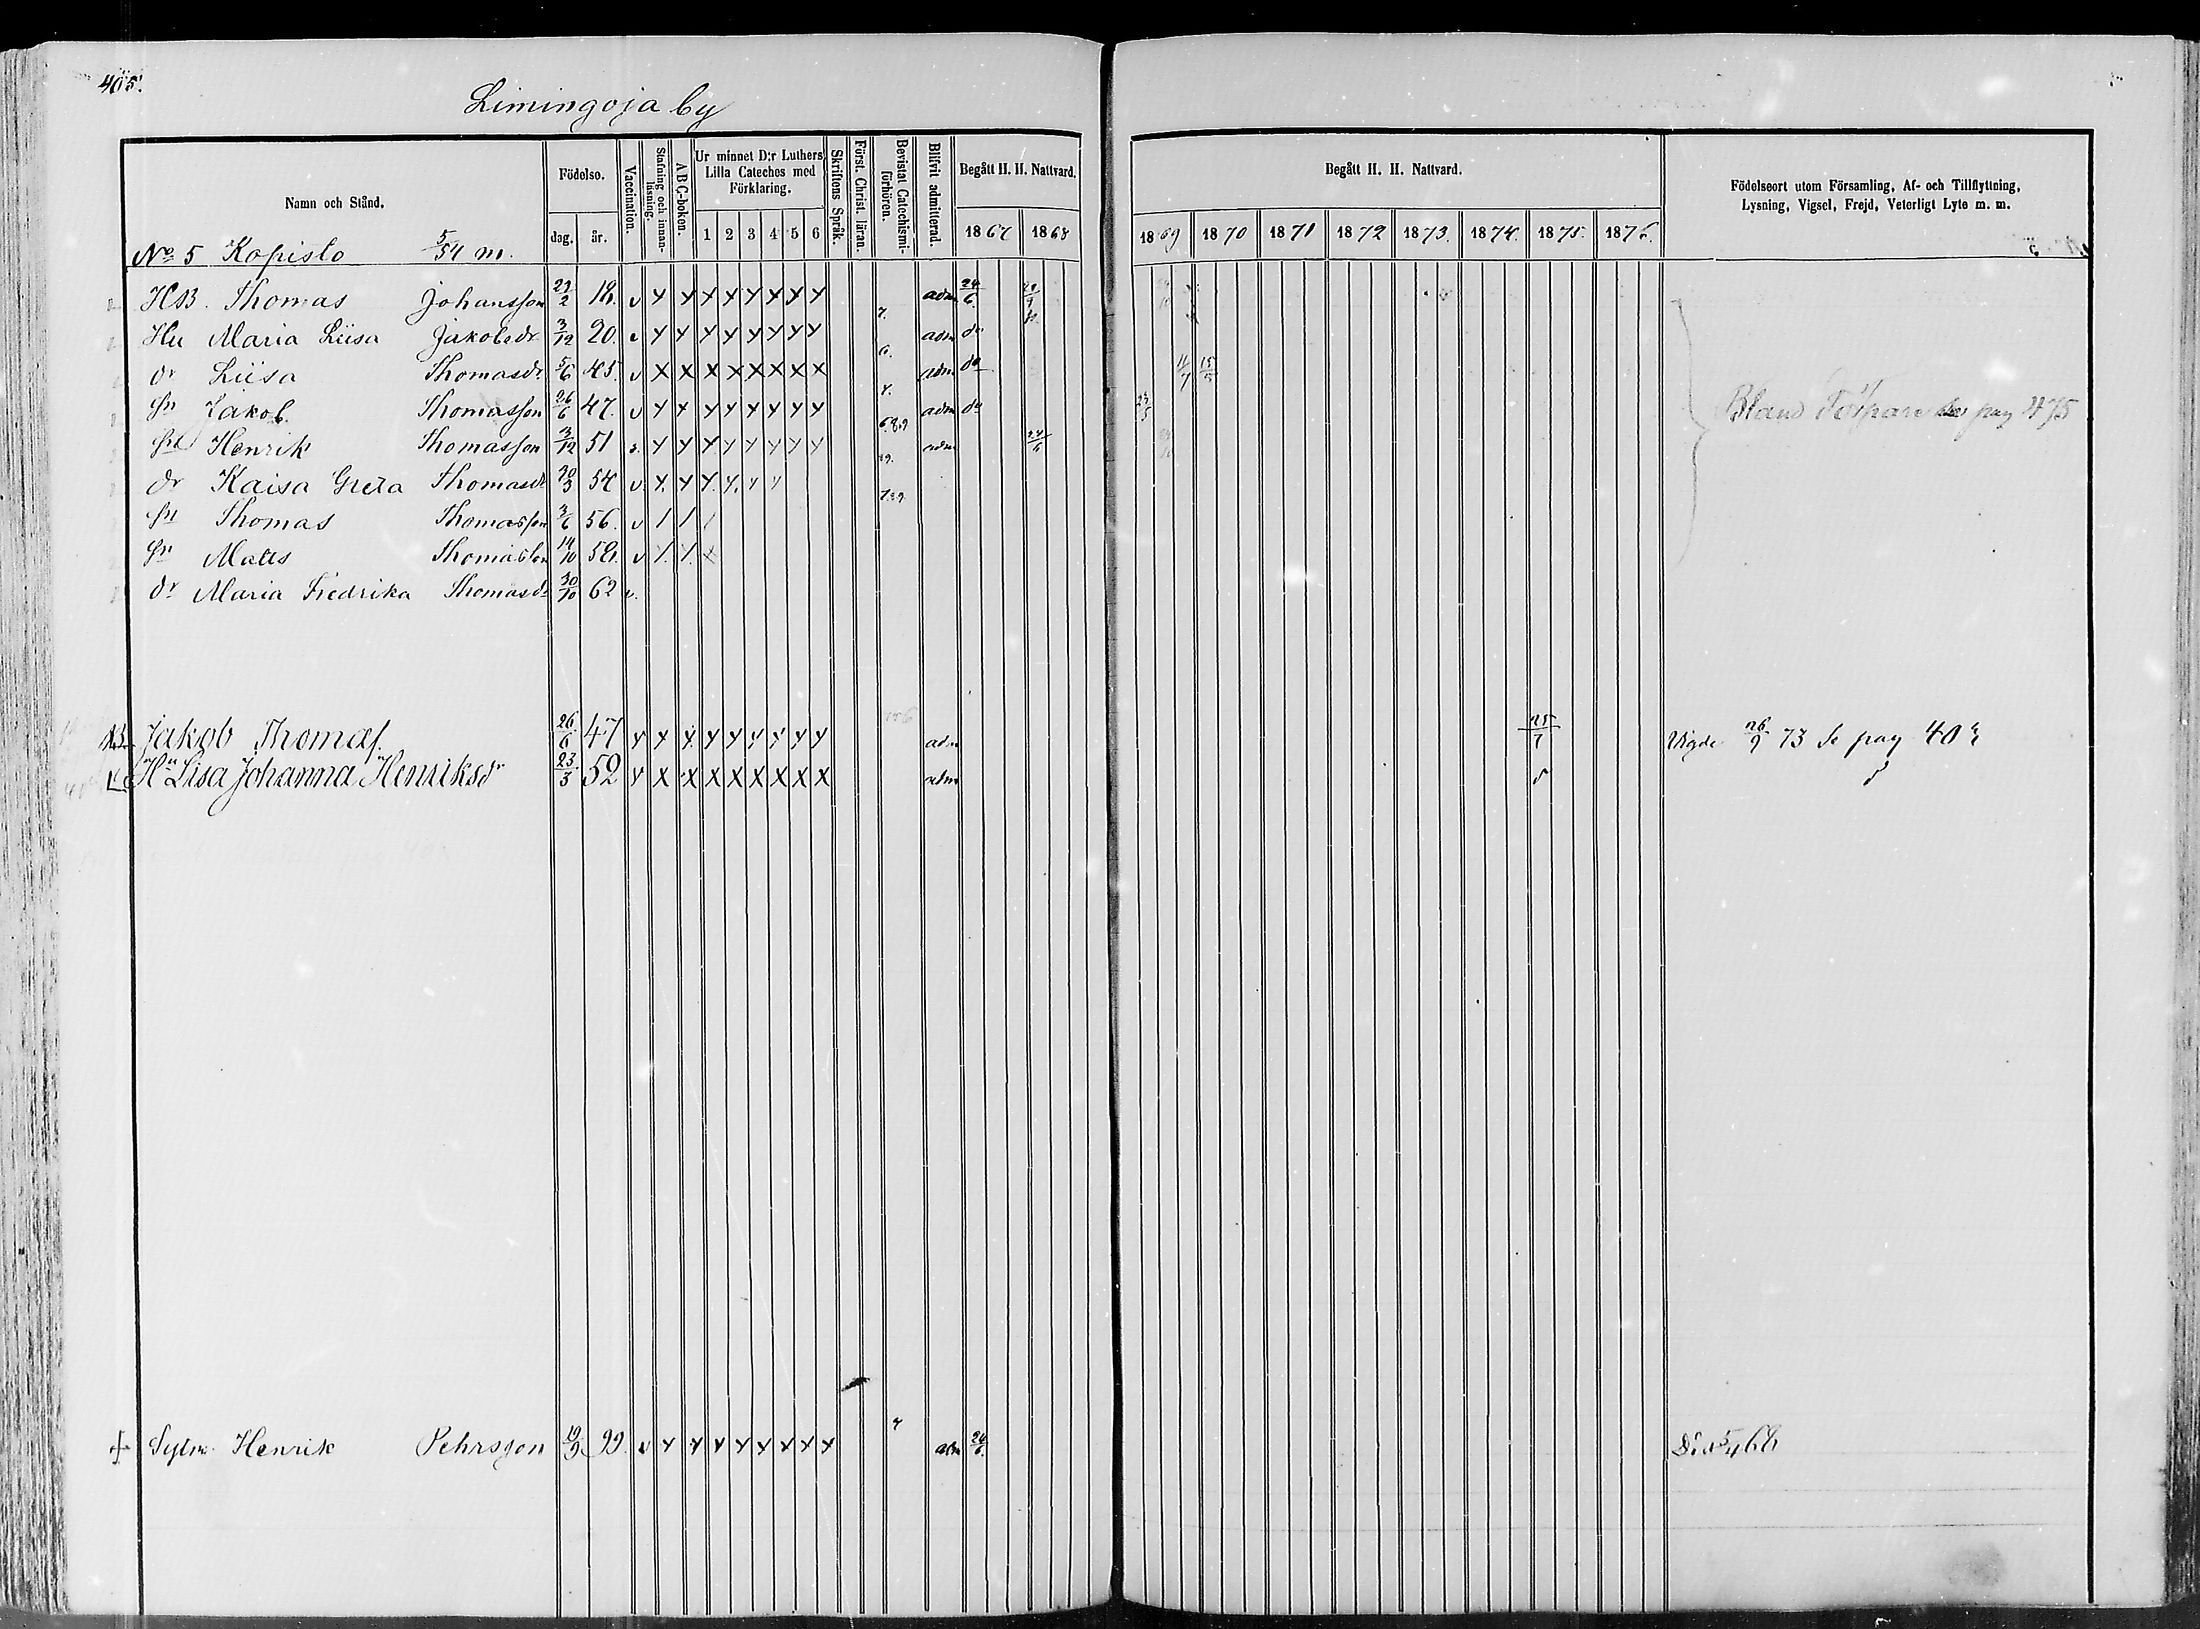 405.
Limingoja by
Namn och Stånd.
Födelse.
dag.
år.
Vaccination.
Stafning och innanläsning.
A B C-boken.
Ur minnet D:r Luthers Lilla Cateches med Förklaring.
1 2 3 4 5 6
Skriftens Språk.
Först. Christ. läran.
Bevistat Catechismiförhören.
Blifvit admitterad.
Begått H. H. Nattvard.
1867 1868
Begått H. H. Nattvard.
1869 1870 1871 1872 1873. 1874. 1875. 1876.
Födelseort utom Församling, Af- och Tillflyttning,
Lysning, Vigsel, Frejd, Veterligt Lyte m. m.
No 5 Kopisto 5/54 m.
HsB. Thomas Johansson 29/2 18. v x x x x x x x x 7. adm 24/6
Hu Maria Liisa Jakobsdr 3/12 20. v x x x x x x x x 6. adm do
dr Liisa Thomasdr 5/6 45. v x x x x x x x x 7. adm do 11/7 15/5
sn Jakob Thomasson 26/6 47. v x x x x x x x x 6.8.9 adm do 23/5 Bland se pag 475
sn Henrik Thomasson 3/12 51 v. x x x x x x x x 89. adm 24/6
dr Kaisa Greta Thomasdr 30/3 54 v. x. x x. x. x x 7.89
sn Thomas Thomasson 3/6 56. v / / /
sn Matts Thomasson 14/10 58. v /. /. x
dr Maria Fredrika Thomasdr 30/10 62 v.
Jakob Thomass. 26/6 47 x x x x x x x x x adm 25/7 Vigde 26/9 73 Se pag
Hn Lisa Johanna Henriksdr 23/3 52 x x x x x x x x x adm
+ Sytn. Henrik Pehrsson 19/9 99. v x x x x x x x x 7 adm 24/6. Död 5/4 68